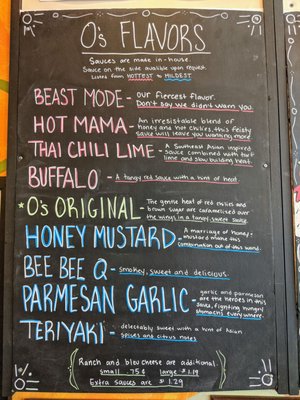 O's FLAVORS
Sauces are made in-house.
Sauce on the side available upon request.
Listed from HOTTEST to MILDEST
BEAST MODE - our fiercest flavor.
Don't say we didn't warn you
HOT MAMA - An irresistable blend of
honey and hot chilies, this feisty
sauce will leave you wanting more
THAI CHILI LIME - A Southeast Asian inspired
sauce combined with tart
lime and slow building heat.
BUFFALO - A tangy red sauce with a hint of heat
*O's ORIGINAL The gentle heat of red chilies and
brown sugar are caramelized over
the wings in a tangy sweet sauce
HONEY MUSTARD - A marriage of honey
mustard makes this
combination out of this world.
BEE BEE Q - smokey, sweet and delicious.
PARMESAN GARLIC - garlic and parmesan
are the heroes in this
sauce, fighting hungry
stomachs everywhere.
TERIYAKI - delectably sweet with a hint of Asian
spices and citrus notes
Ranch and bleu cheese are additional.
small .75¢ large $1.19
Extra sauces are $1.29